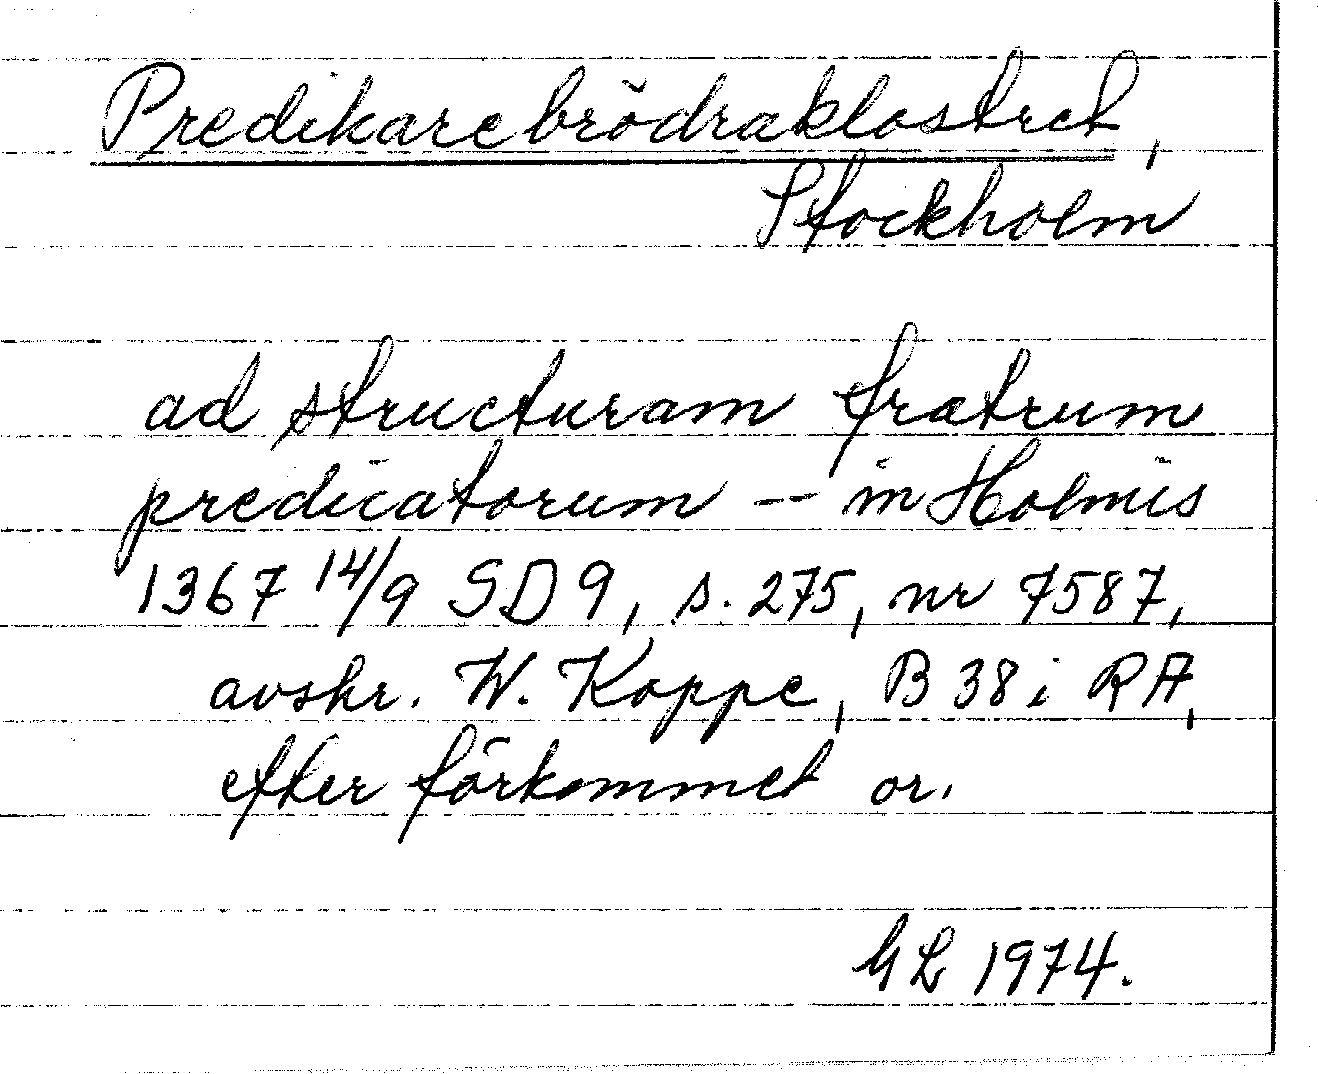 Predikarebrödraklostret,
Stockholm
ad structuram fratrum
predicatorum -- in Holmis
1367 14/9 SD 9, s. 275, nr 7587,
avskr. W. Koppe, B 38 i RA,
efter förkommet or.
GL 1974.